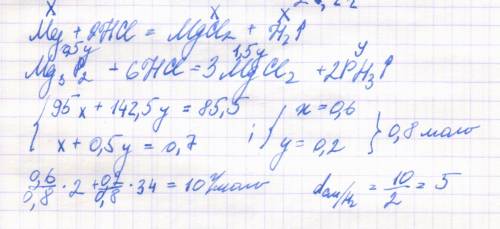 x x x
Mg + 2HCl = MgCl₂ + H₂↑
0,5y 1,5y y
Mg₃P₂ + 6HCl = 3MgCl₂ + 2PH₃↑
{ 95x + 142,5y = 85,5 ; { x = 0,6 } 0,8 моль
{ x + 0,5y = 0,7 { y = 0,2
0,6/0,8 · 2 + 0,2/0,8 · 34 = 10 г/моль d см/H₂ = 10/2 = 5